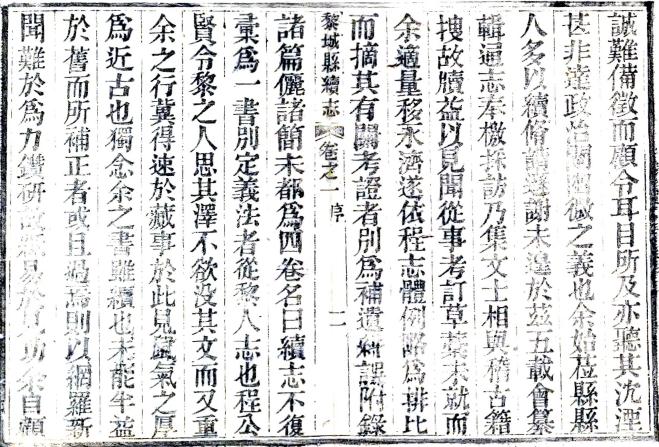 誠難備徵而顧令耳目所及亦聽其沈湮
甚非達政治闡幽微之義也余始蒞縣縣
人多以續脩請遜謝未遑於茲五載會纂
輯通志奉檄採訪乃集文士相與稽古籍
搜故牘益以見聞從事考訂草藁未就而
余適量移永濟遂依程志體例略爲排比
而摘其有關考證者別爲補遺糾誤附錄
黎城縣續志 卷之一 序 二
諸篇儷諸簡末都爲四卷名曰續志不復
彙爲一書別定義法者從黎人志也程公
賢令黎之人思其澤不欲沒其文而又重
余之行冀得速於蕆事於此見風氣之厚
爲近古也獨念余之書雖續也未能半益
於舊而所補正者或且過焉則以網羅新
聞難於爲力鑽研故紙易於見功余自顧